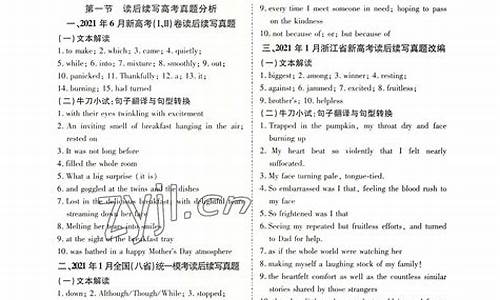 第一节 读后续写高考真题分析
一、2021 年 6 月新高考(I,II)卷读后续写真题
(一)文本解读
1. to make; 2. which; 3. came; 4. quietly;
5. while; 6. into; 7. mixture; 8. smoothly; 9. out;
10. panicked; 11. Thankfully; 12. a; 13. it;
14. burning; 15. had turned
(二)牛刀小试:句子翻译与句型转换
1. with their eyes twinkling with excitement
2. An inviting smell of breakfast hanging in the air;
rested on
3. It was not long before
4. filled the whole room
5. What a big surprise (it is)
6. and goggled at the twins and the dishes
7. Lost in the delicious breakfast, with delightful tears
streaming down her face
8. Melting her tears into smiles
9. at the sight of the breakfast tray
10. was bathed in a happy Mother's Day atmosphere
二、2021 年 1 月全国(八省)统一模考读后续写真题
(一)文本解读
1. down; 2. Although/Though/While; 3. stopped;
9. every time I meet someone in need; hoping to pass
on the kindness
10. not because of; or; but because of
三、2021 年 1 月浙江省新高考读后续写真题改编
(一)文本解读
1. biggest; 2. among; 3. winner; 4. resting;
5. against; 6. jammed; 7. excited; 8. fruitless;
9. brother's; 10. helpless
(二)牛刀小试:句子翻译与句型转换
1. Trapped in the pumpkin, my throat dry and face
burning up
2. My heart beat so violently that I felt nearly
suffocated.
3. My face turning pale, tongue-tied.
4. So embarrassed was I that, feeling the blood rush to
my face
5. So frightened was I that
6. Seeing my repeated but fruitless efforts, and turned
to Dad for help.
7. as if the whole world were watching her
8. making myself a laughing stock of my family!
9. the heartfelt comfort as well as the countless similar
stories shared by those strangers
zyjl.cn